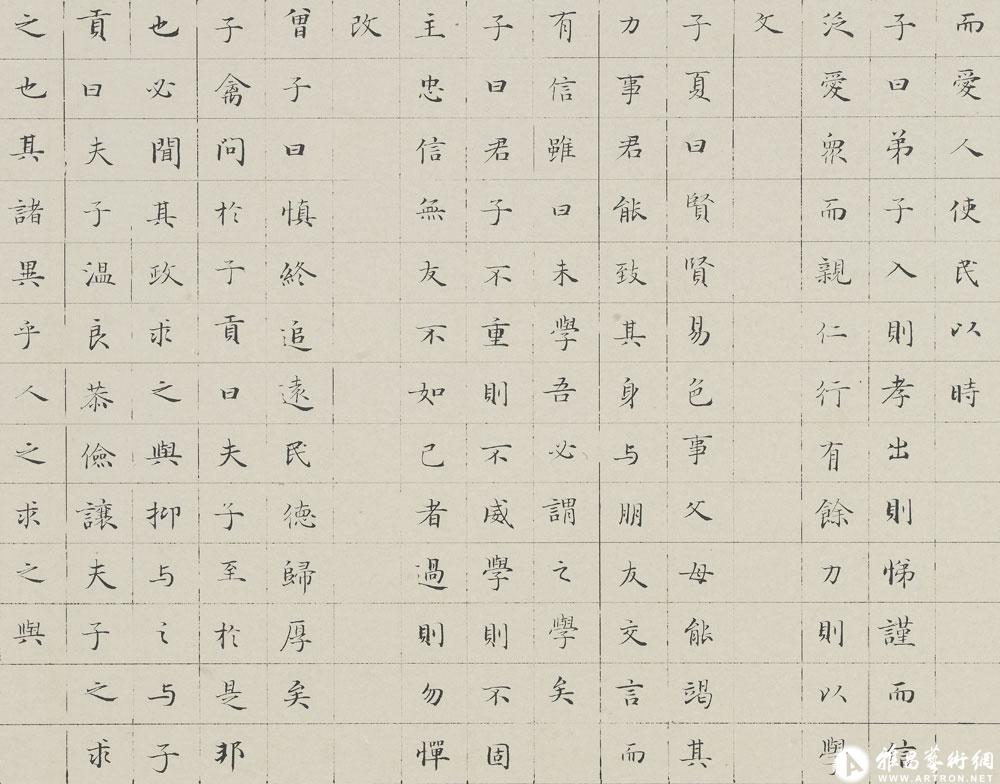 而愛人使民以時
子曰弟子入則孝出則悌謹而信
泛愛眾而親仁行有餘力則以學
文
子夏曰賢賢易色事父母能竭其
力事君能致其身与朋友交言而
有信雖曰未學吾必謂之學矣
子曰君子不重則不威學則不固
主忠信無友不如己者過則勿憚
改
曾子曰慎終追遠民德歸厚矣
子禽問於子貢曰夫子至於是邦
也必聞其政求之與抑与之与子
貢曰夫子温良恭儉讓夫子之求
之也其諸異乎人之求之與
雅昌藝術網
WWW.ARTRON.NET